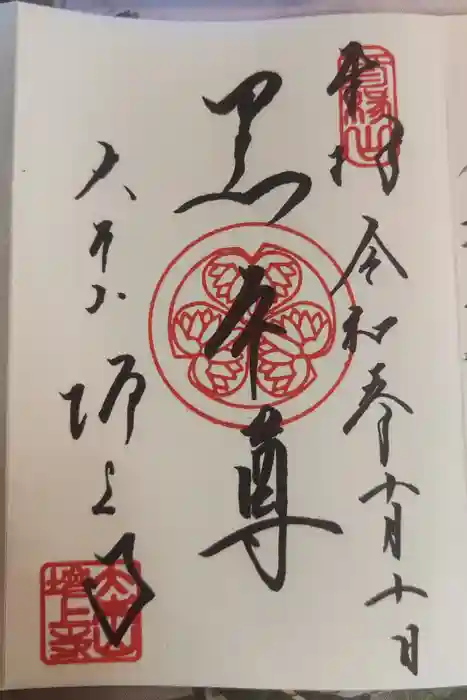 奉拝
令和参十月十日
黒本尊
大本山 増上寺
三縁山
大本山
増上寺